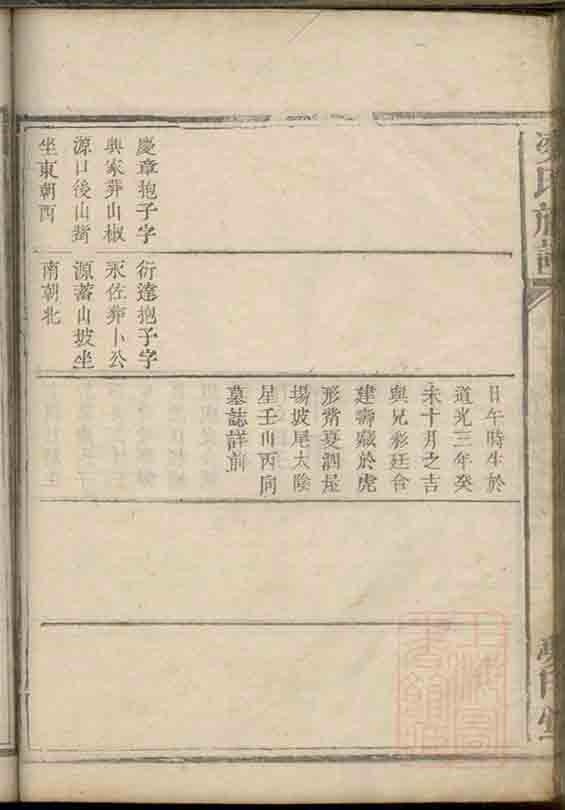 慶章抱子字
興家葬山椒
源口後山嘴
坐東朝西
衍達抱子字
永佐葬卜公
源蓄山坡坐
南朝北
日午時生於
道光三年癸
未十月之吉
與兄彩廷合
建壽藏於虎
形嘴夏泗屋
場坡尾太陰
星壬山丙向
墓誌詳前
氏族譜